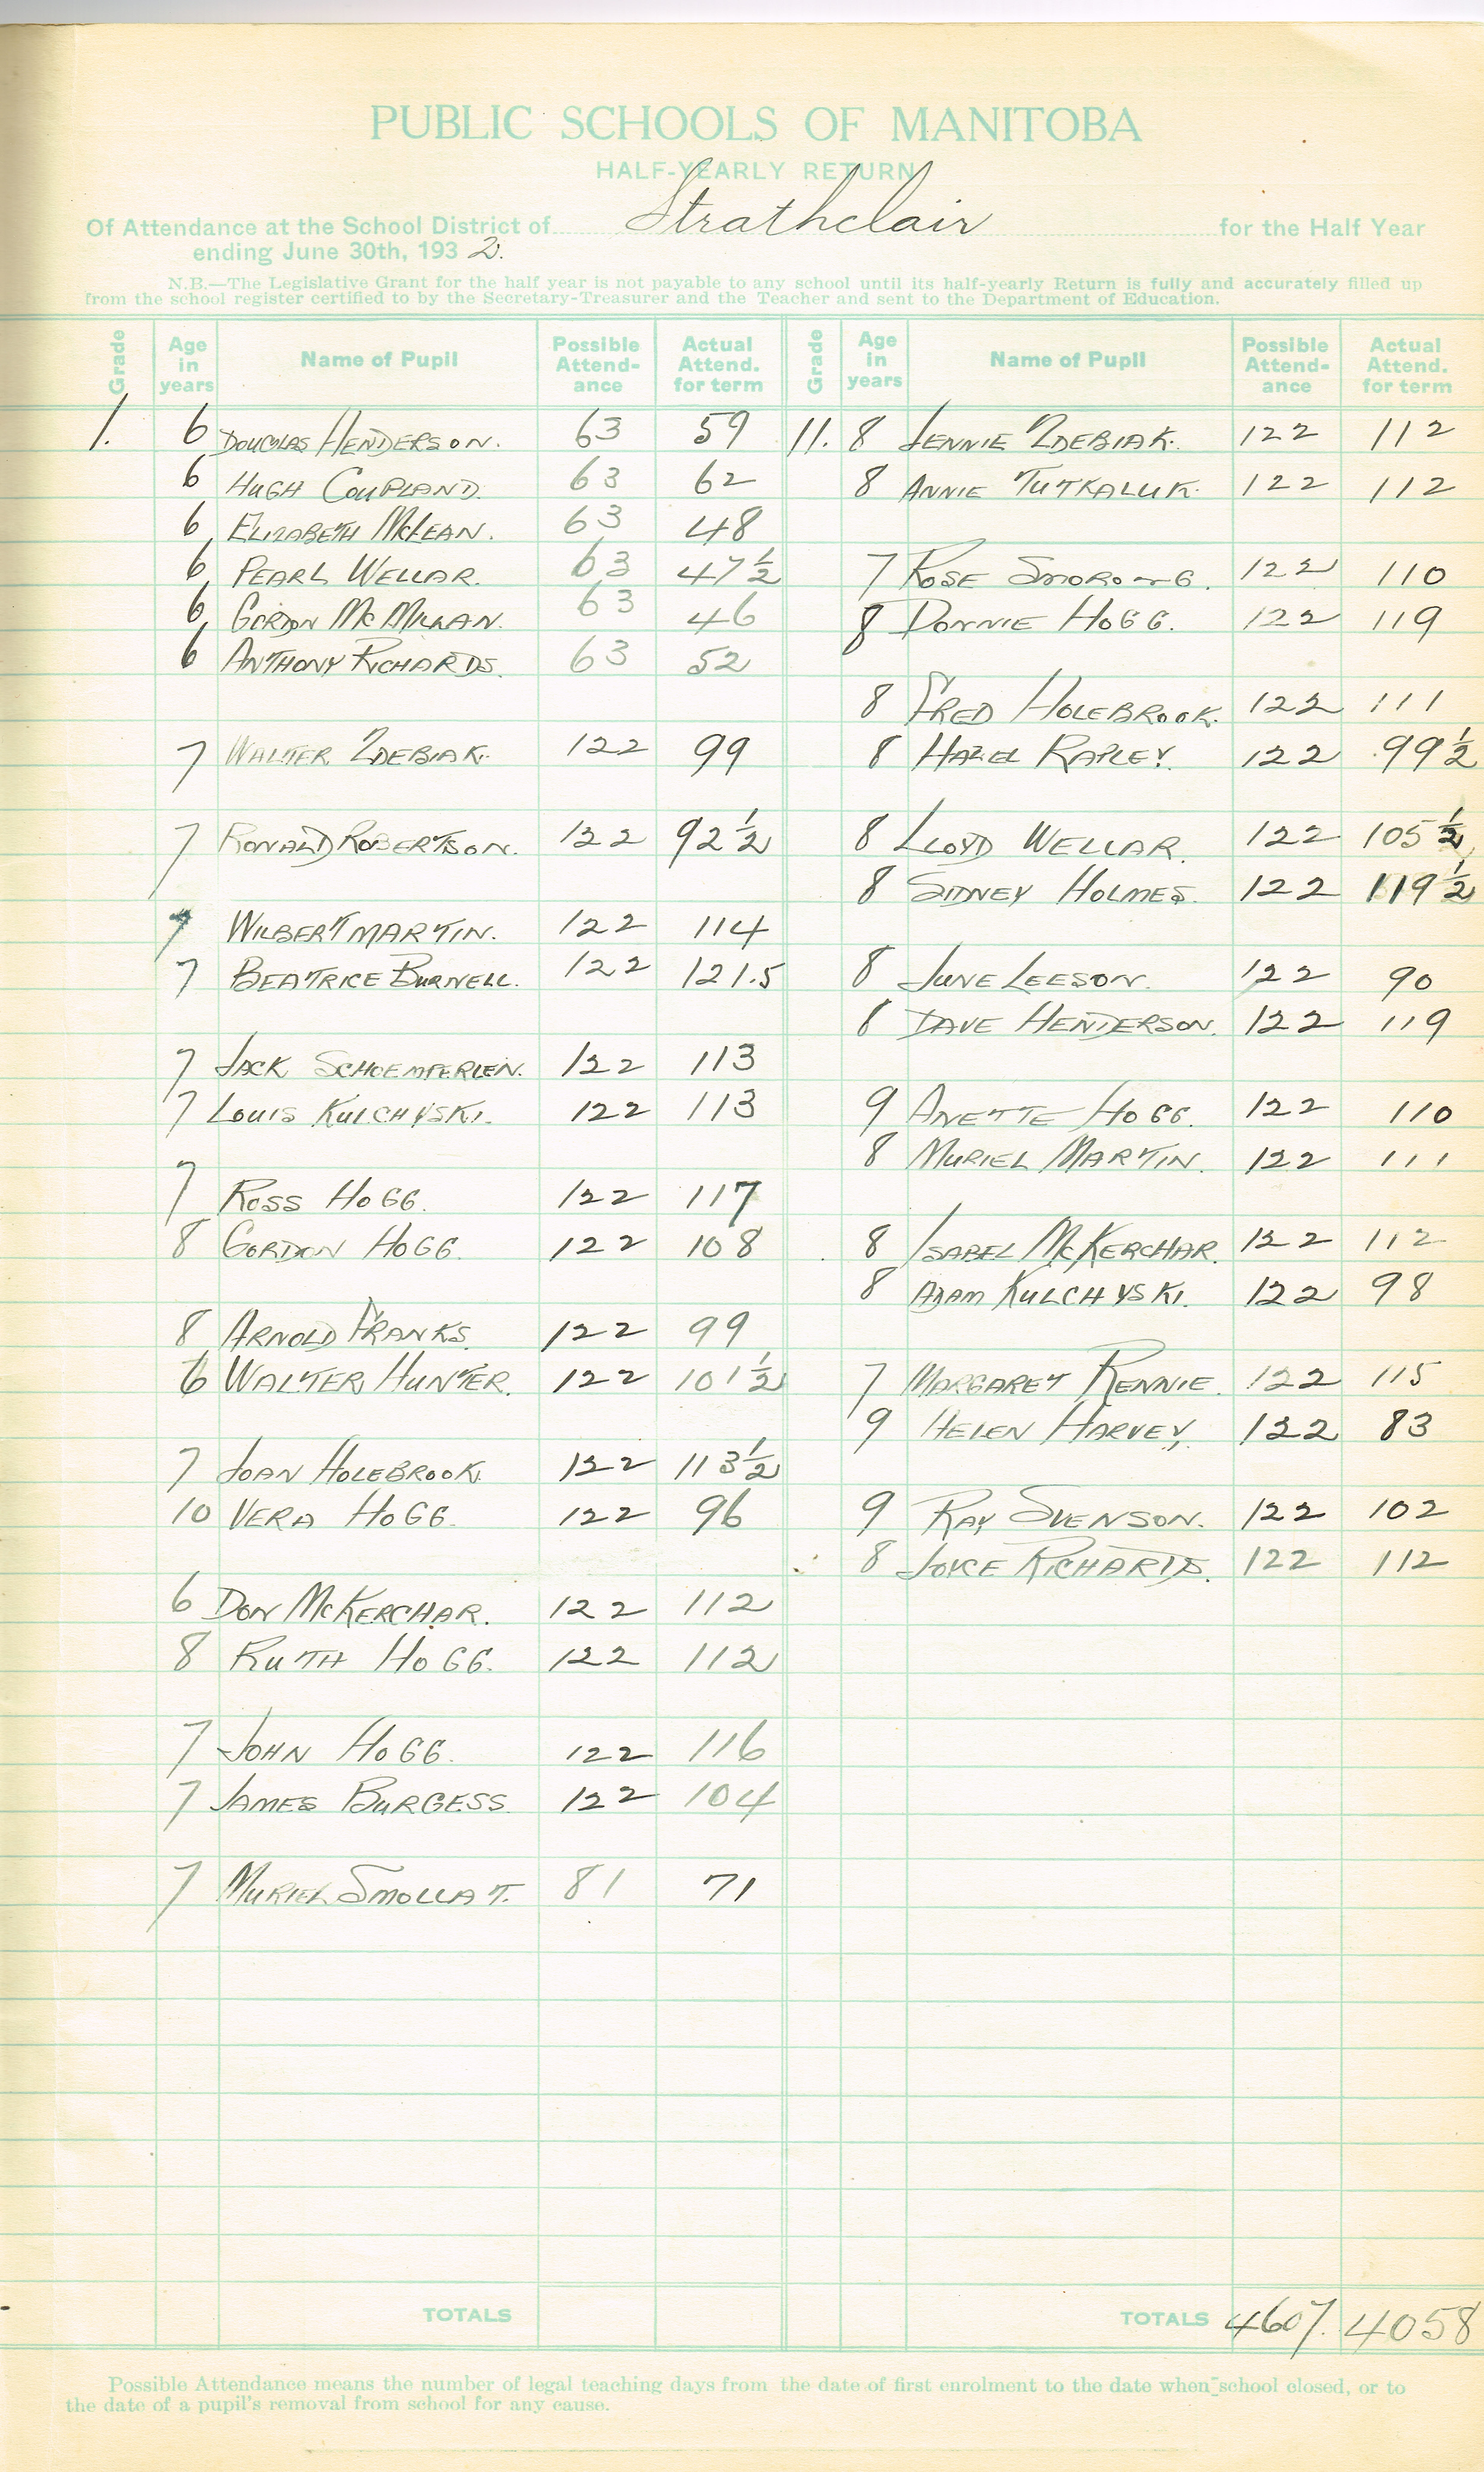 PUBLIC SCHOOLS OF MANITOBA
HALF-YEARLY RETURN
Of Attendance at the School District of Strathclair for the Half Year
ending June 30th, 1932.
N.B.—The Legislative Grant for the half year is not payable to any school until its half-yearly Return is fully and accurately filled up
from the school register certified to by the Secretary-Treasurer and the Teacher and sent to the Department of Education.
Grade Age in years Name of Pupil Possible Attend-ance Actual Attend. for term Grade Age in years Name of Pupil Possible Attend-ance Actual Attend. for term
1. 6 DOUGLAS HENDERSON. 63 59
6 HUGH COUPLAND. 63 62
6 ELIZABETH MCLEAN. 63 48
6 PEARL WELLAR. 63 47½
6 GORDON MCMILLAN. 63 46
6 ANTHONY RICHARDS. 63 52
7 WALTER ZDEBIAK. 122 99
7 RONALD ROBERTSON. 122 92½
7 WILBERT MARTIN. 122 114
7 BEATRICE BURNELL. 122 121.5
7 JACK SCHOEMPERLEN. 122 113
7 LOUIS KULCHYSKI. 122 113
7 ROSS HOGG. 122 117
8 GORDON HOGG. 122 108
8 ARNOLD FRANKS. 122 99
6 WALTER HUNTER. 122 101½
7 JOAN HOLEBROOK. 122 113½
10 VERA HOGG. 122 96
6 DON MCKERCHAR. 122 112
8 RUTH HOGG. 122 112
7 JOHN HOGG. 122 116
7 JAMES BURGESS. 122 104
7 MURIEL SMOLLAT. 81 71
TOTALS
11. 8 JENNIE ZDEBIAK. 122 112
8 ANNIE TUTKALUK. 122 112
7 ROSE 122 110
8 DONNIE HOGG. 122 119
8 FRED HOLEBROOK. 122 111
8 HAZEL RAPLEY. 122 99½
8 LLOYD WELLAR. 122 105½
8 SIDNEY HOLMES. 122 119½
8 JUNE LEESON. 122 90
8 DAVE HENDERSON. 122 119
9 ANETTE HOGG. 122 110
8 MURIEL MARTIN. 122 111
8 ISABEL MCKERCHAR. 122 112
8 ADAM KULCHYSKI. 122 98
7 MARGARET RENNIE. 122 115
9 HELEN HARVEY. 122 83
9 RAY SVENSON. 122 102
8 JOYCE RICHARDS. 122 112
TOTALS 4607. 4058
Possible Attendance means the number of legal teaching days from the date of first enrolment to the date when school closed, or to
the date of a pupil's removal from school for any cause.